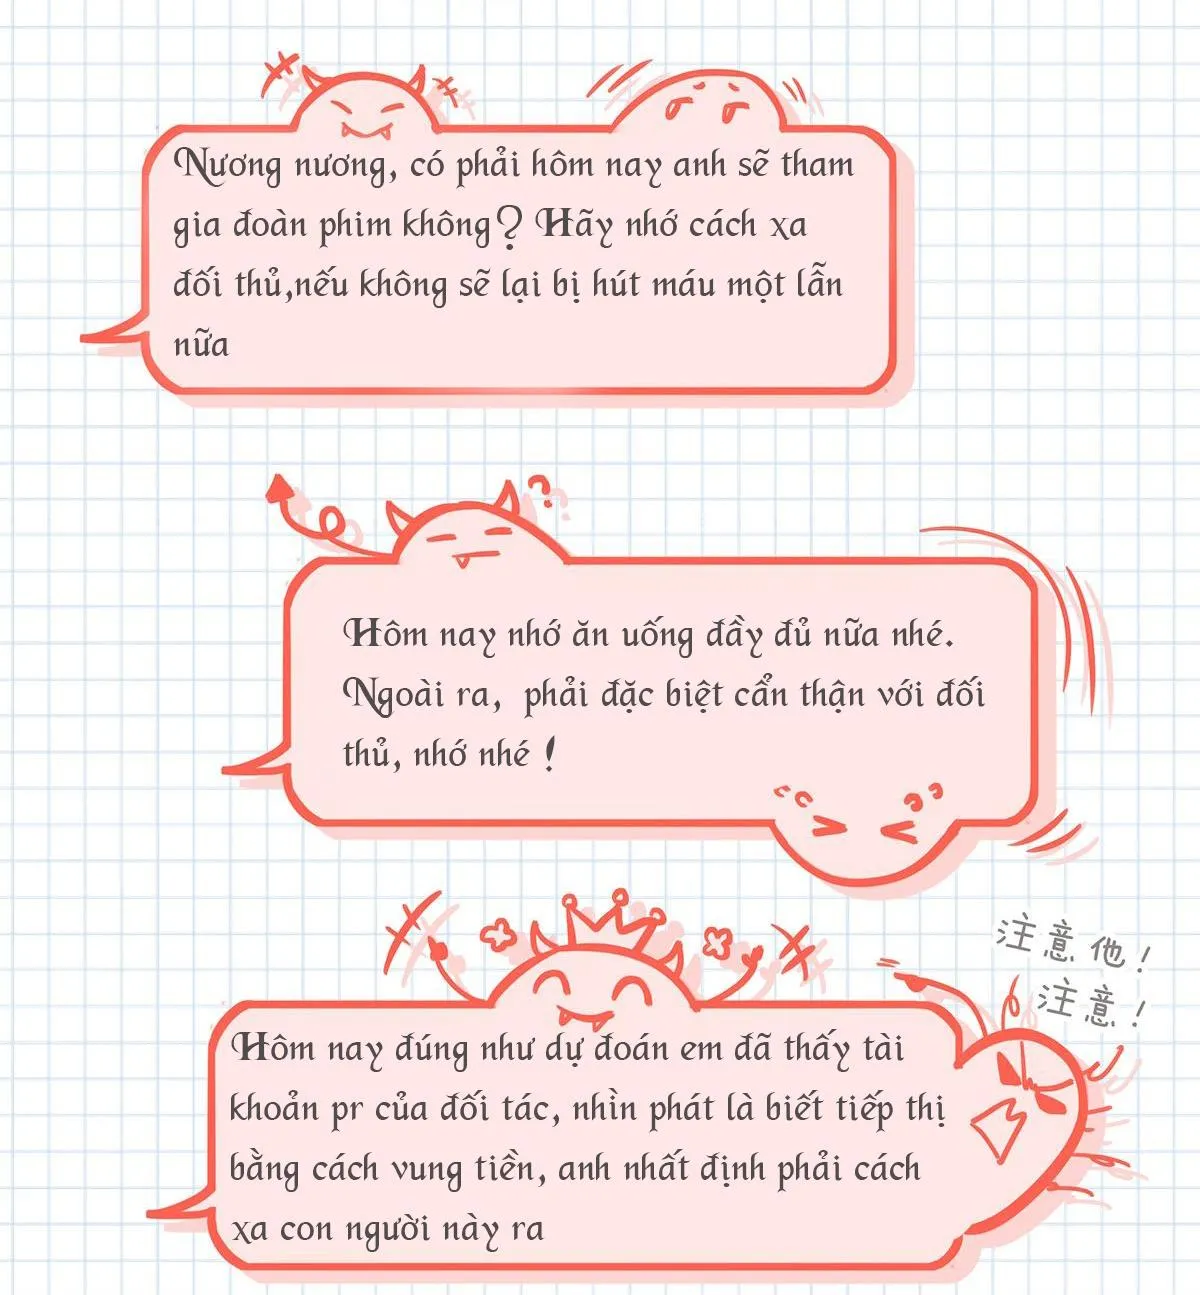 Nương nương, có phải hôm nay anh sẽ tham
gia đoàn phim không? Hãy nhớ cách xa
đối thủ,nếu không sẽ lại bị hút máu một lẫn
nữa
Hôm nay nhớ ăn uống đầy đủ nữa nhé.
Ngoài ra, phải đặc biệt cẩn thận với đối
thủ, nhớ nhé !
注意他!
注意!
Hôm nay đúng như dự đoán em đã thấy tài
khoản pr của đối tác, nhìn phát là biết tiếp thị
bằng cách vung tiền, anh nhất định phải cách
xa con người này ra